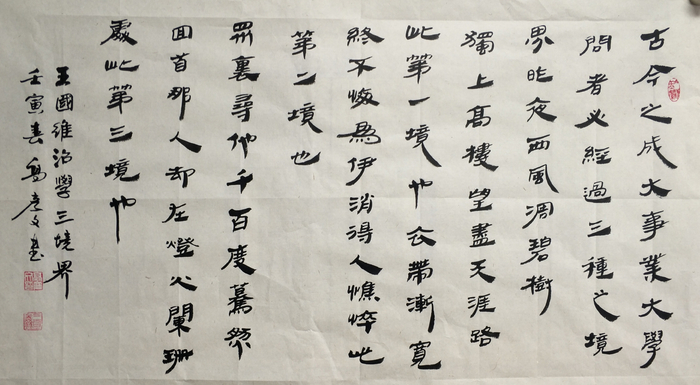 古今之成大事業大學
問者必經過三種之境
界昨夜西風凋碧樹
獨上高樓望盡天涯路
此第一境也衣帶漸寬
終不悔爲伊消得人憔悴此
第二境也
眾裏尋他千百度驀然
回首那人却在燈火闌珊
處此第三境也
王國維治學三境界
壬寅春